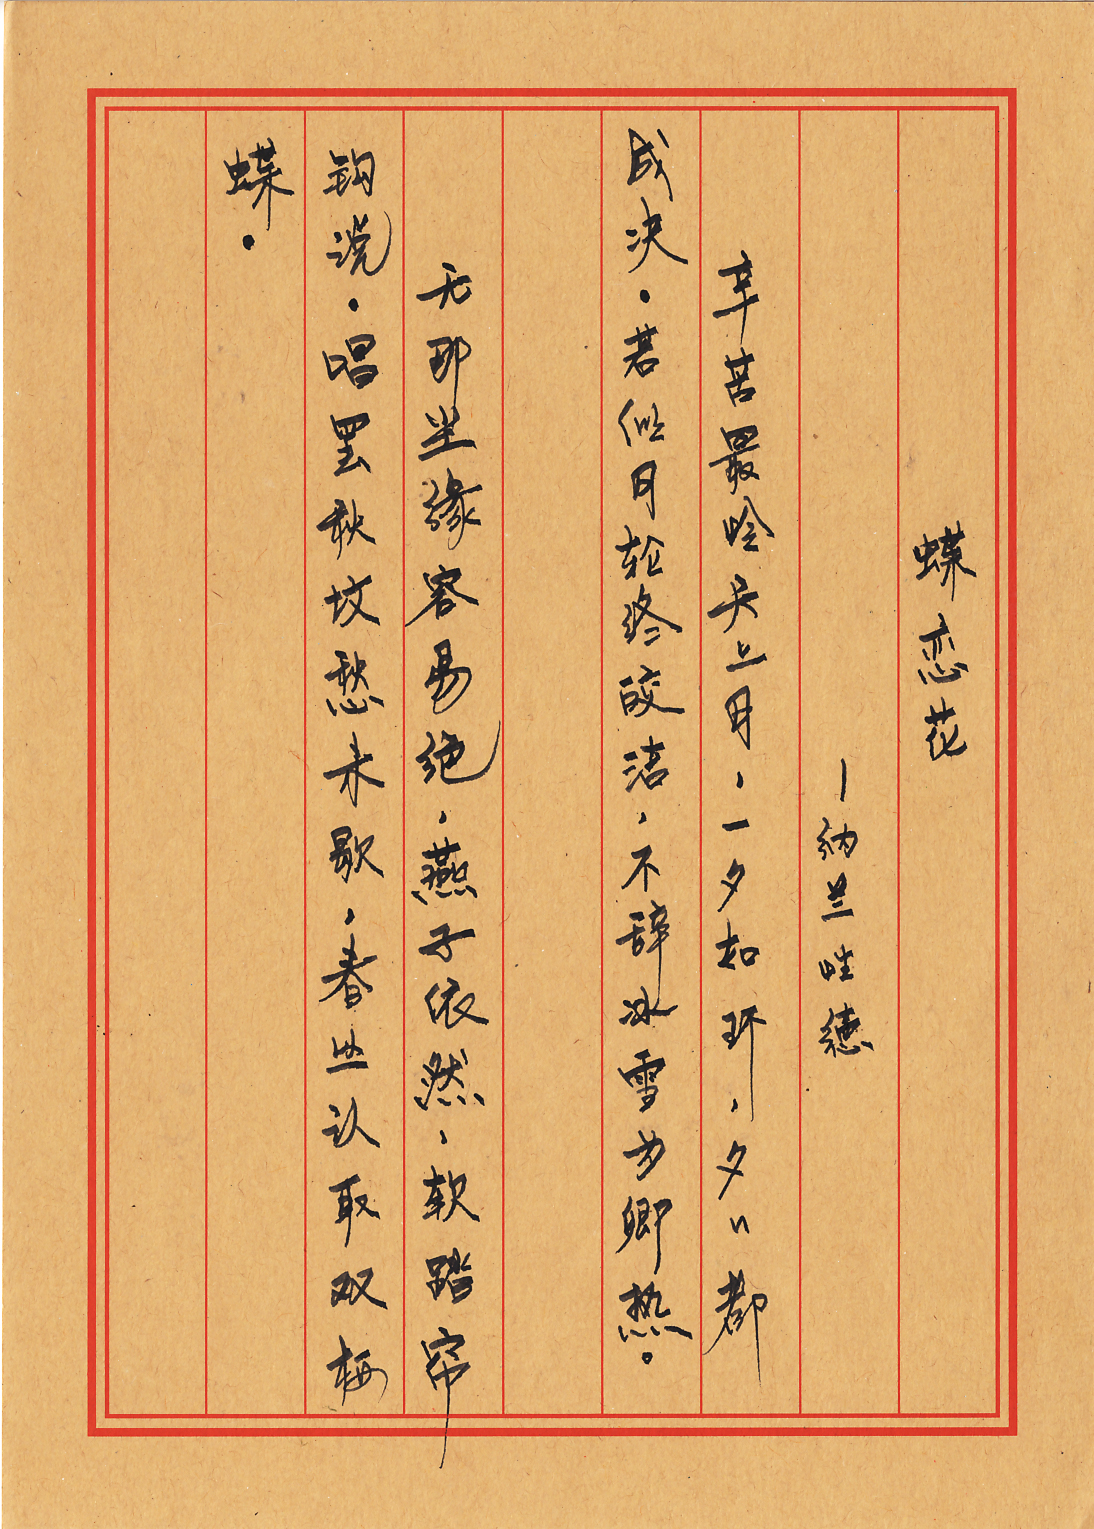 蝶恋花
—纳兰性德
辛苦最怜天上月，一夕如环，夕〃都
成决。若似月轮终皎洁，不辞冰雪为卿热。
无那尘缘容易绝，燕子依然，软踏帘
钩说。唱罢秋坟愁未歇，春丛认取双栖
蝶。